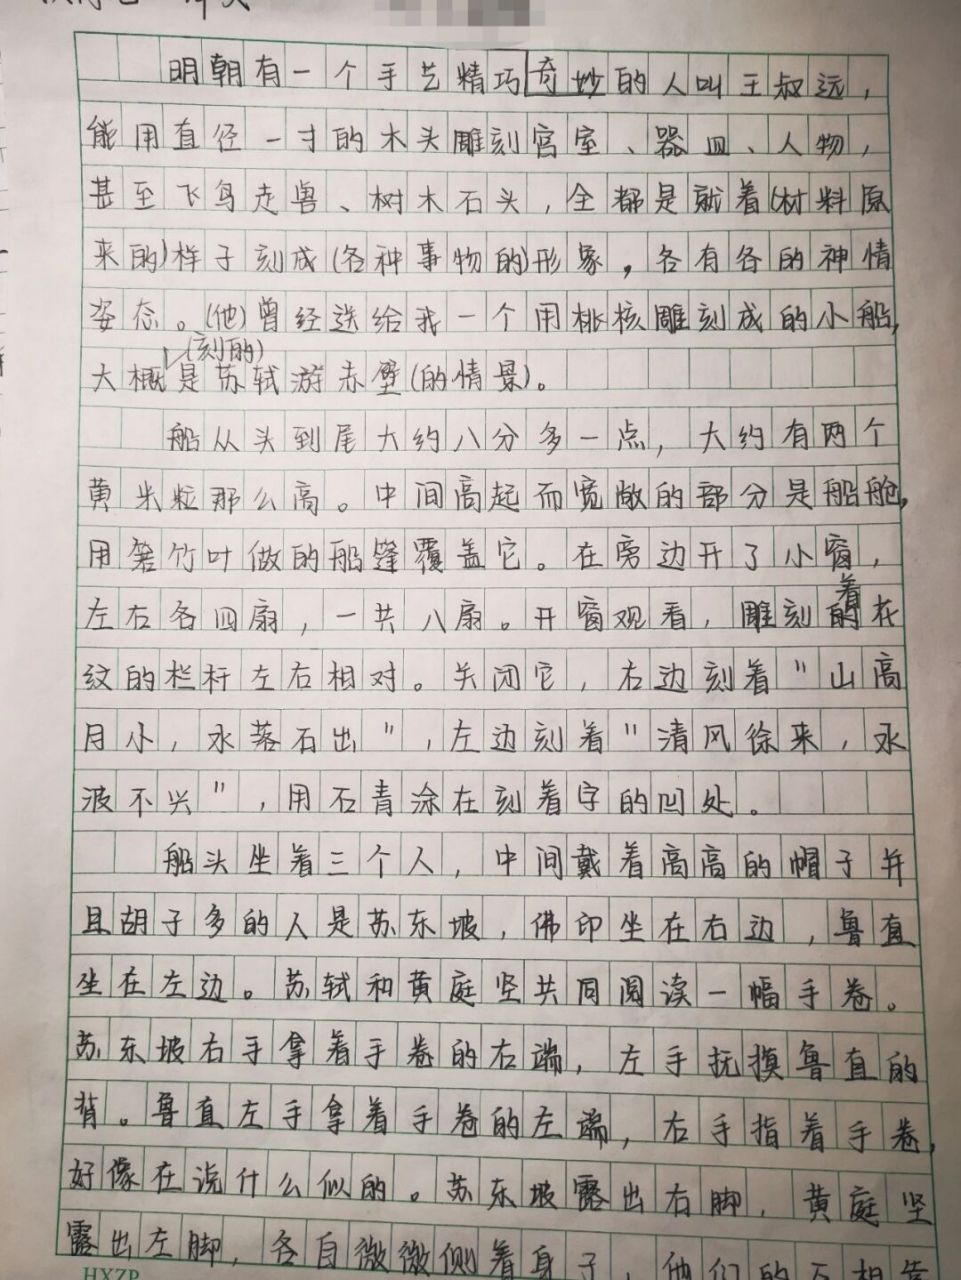 明朝有一个手艺精巧奇妙的人叫王叔远，
能用直径一寸的木头雕刻宫室、器皿、人物，
甚至飞鸟走兽、树木石头，全都是就着(材料原
来的)样子刻成(各种事物的)形象，各有各的神情
姿态。(他)曾经送给我一个用桃核雕刻成的小船，
(刻的)
大概是苏轼游赤壁(的情景)。
船从头到尾大约八分多一点，大约有两个
黄米粒那么高。中间高起而宽敞的部分是船舱，
用箬竹叶做的船篷覆盖它。在旁边开了小窗，
左右各四扇，一共八扇。开窗观看，雕刻着花
纹的栏杆左右相对。关闭它，右边刻着"山高
月小，水落石出"，左边刻着"清风徐来，水
波不兴"，用石青涂在刻着字的凹处。
船头坐着三个人，中间戴着高高的帽子并
且胡子多的人是苏东坡，佛印坐在右边，鲁直
坐在左边。苏轼和黄庭坚共同阅读一幅手卷。
苏东坡右手拿着手卷的右端，左手抚摸鲁直的
背。鲁直左手拿着手卷的左端，右手指着手卷，
好像在说什么似的。苏东坡露出右脚，黄庭坚
露出左脚，各自微微侧着身子，他们的
HXZP